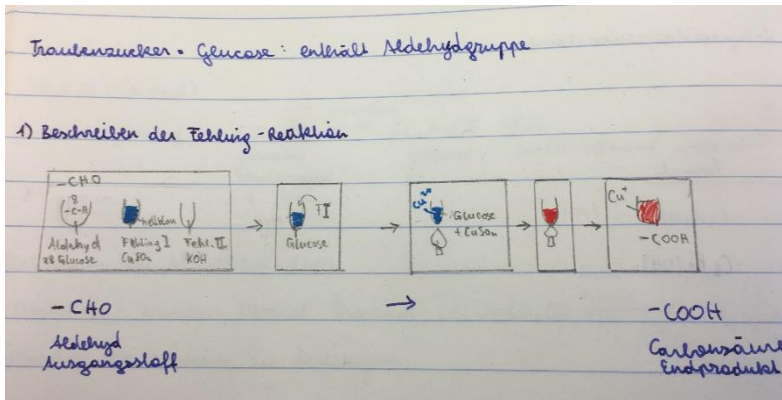 Traubenzucker = Glucose: enthält Aldehydgruppe
1) Beschreiben der Fehling-Reaktion
-CHO
-C-H
Aldehyd
zB Glucose
hellblau
Fehling I
CuSO4
Fehl. II
KOH
II
Glucose
Cu2+
Glucose
+ CuSO4
Cu+
-COOH
-CHO
Aldehyd
Ausgangsstoff
-COOH
Carbonsäure
Endprodukt